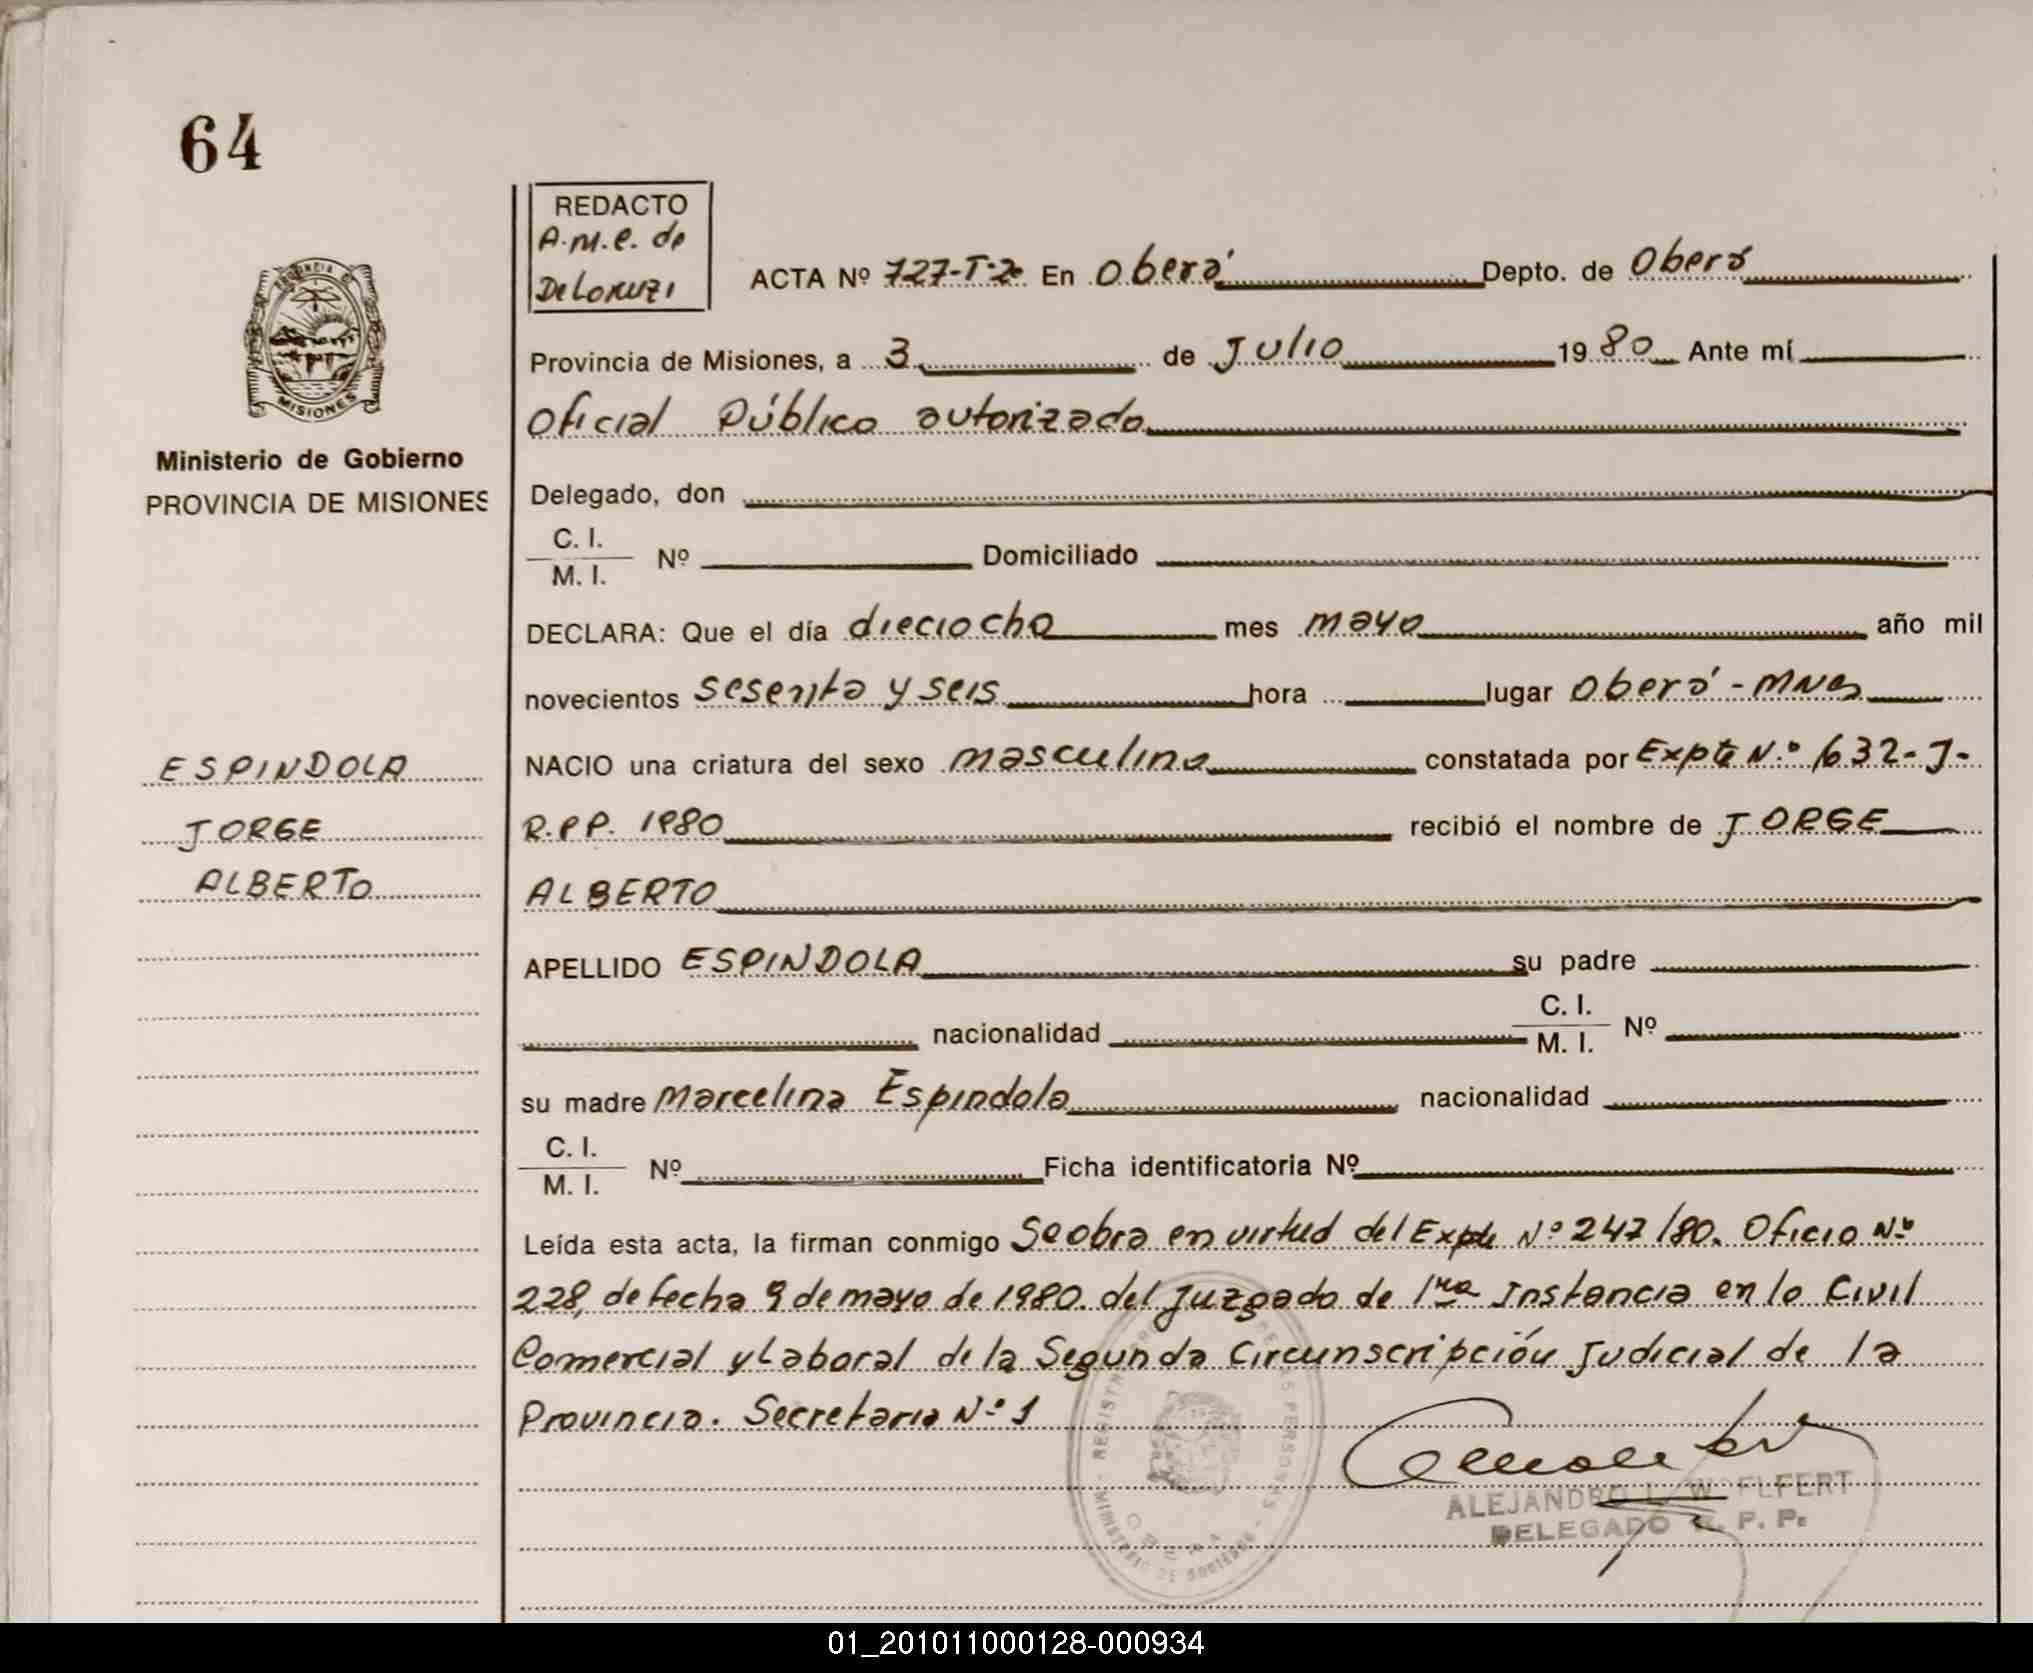 64
REDACTO
A.M.E. de
De Lorenzi
ACTA Nº 727-T-2º En Oberá Depto. de Oberá
Provincia de Misiones, a 3 de Julio 1980 Ante mí
Oficial Público autorizado
MISIONES
Ministerio de Gobierno
PROVINCIA DE MISIONES
Delegado, don
C. I.
M. I. Nº Domiciliado
DECLARA: Que el día dieciocho mes mayo año mil
novecientos sesenta y seis hora lugar Oberá - Mnes
ESPINDOLA
JORGE
ALBERTO
NACIO una criatura del sexo masculino constatada por Expte N.º 632-J-
R.P.P. 1980 recibió el nombre de JORGE
ALBERTO
APELLIDO ESPINDOLA su padre
nacionalidad C. I.
M. I. Nº
su madre Marcelina Espindola nacionalidad
C. I.
M. I. Nº Ficha identificatoria Nº
Leída esta acta, la firman conmigo Se obra en virtud del Expte Nº 247/80. Oficio Nº
228, de fecha 9 de mayo de 1980. del Juzgado de 1ra Instancia en lo Civil
Comercial y Laboral de la Segunda Circunscripción Judicial de la
Provincia. Secretaria Nº 1
ALEJANDRO L. W. ELFERT
DELEGADO R. P. P.
01_201011000128-000934